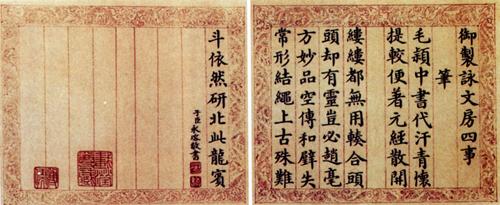 御製詠文房四事
筆
毛穎中書代汗青懷
提較便著元經散開
縷縷都無用輳合頭
頭却有靈豈必趙毫
方妙品空傳和璧失
常形結繩上古殊難
斗依然研北此龍賓
子臣永瑢敬書